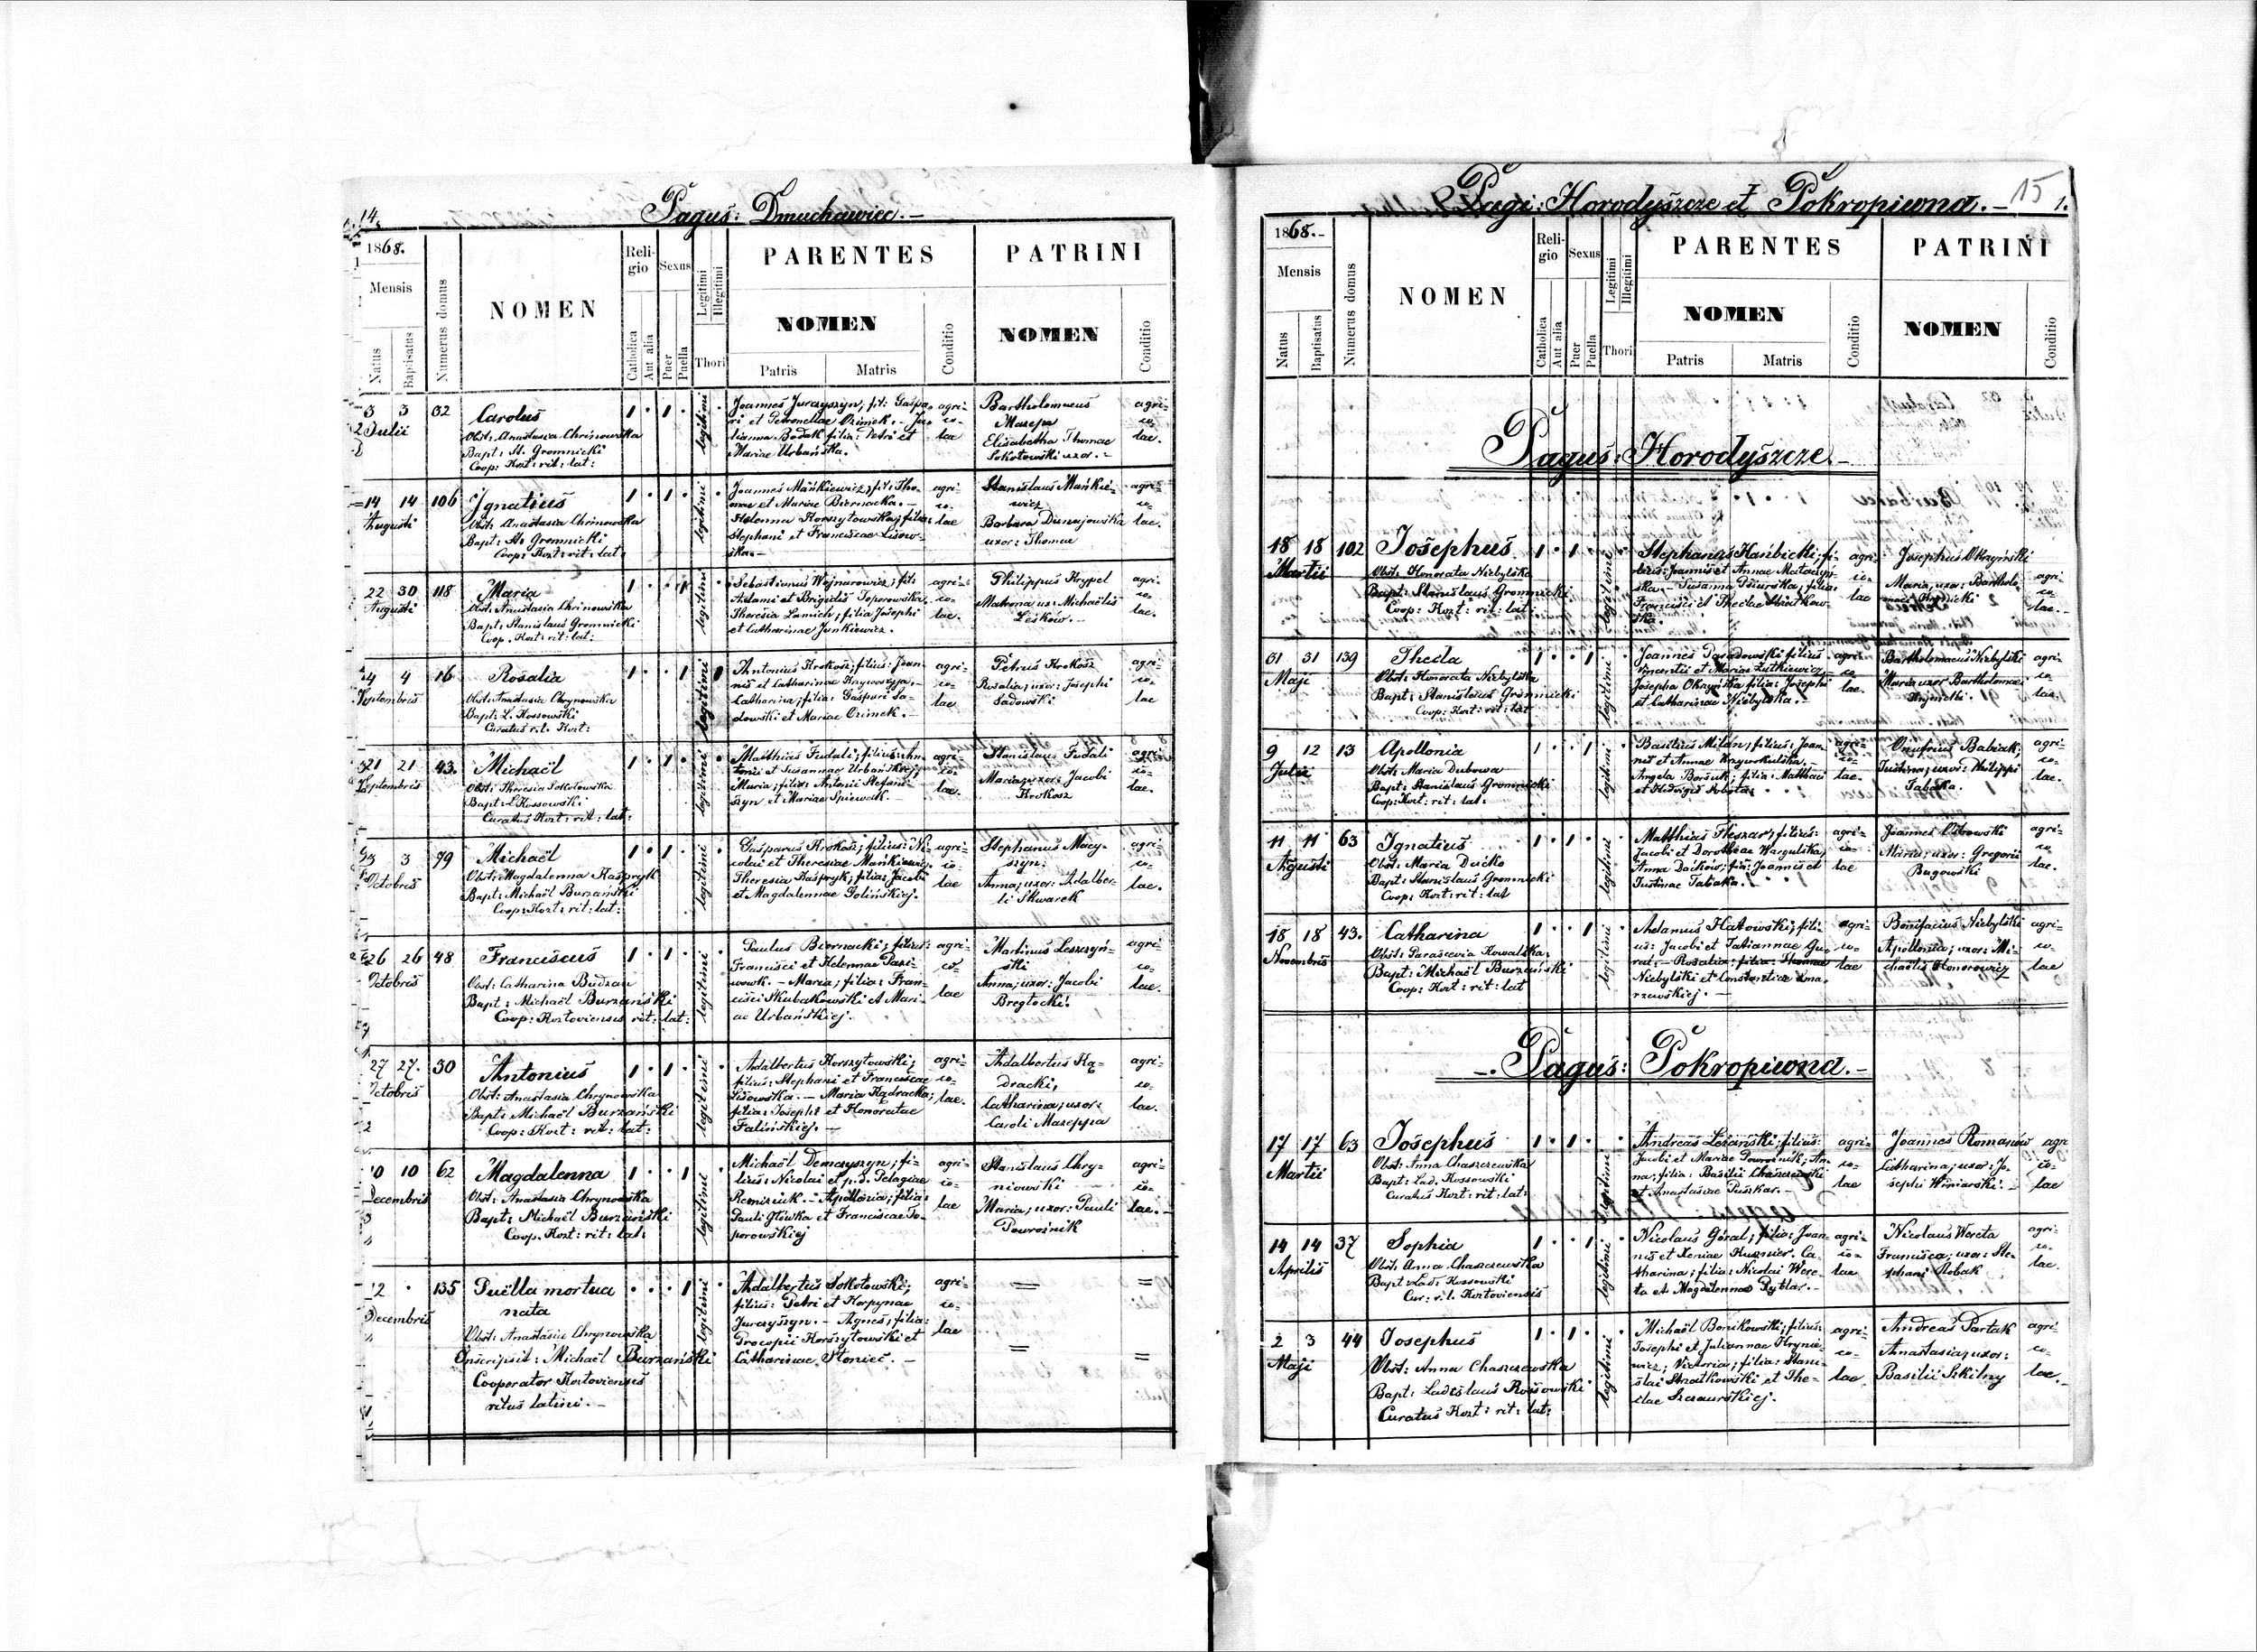 14.
Pagus: Dmuchawiec.-
1868.
Mensis
Natus
Baptisatus
Numerus domus
NOMEN
Religio
Catholica
Aut alia
Sexus
Puer
Puella
Legitimi
Illegitimi
Thori
PARENTES
NOMEN
Patris
Matris
Conditio
PATRINI
NOMEN
Conditio
3 3 32
Julii
Carolus
Obst: Anastasia Chrinowska
Bapt: St. Gromnicki
Coop: Kozt: rit: lat:
legitimi
Joannes Jurczyszyn; fil: Gaspa-
ri et Petronellae Ozimek.- Ju-
lianna Bodak filia: Petri et
Mariae Urbańska.
agri-
co-
lae
Bartholomeus
Mazepa
Elisabetha Thomae
Sokołowski uxor.-
agri-
co-
lae.
14 14 106
Augusti
Ignatius
Obst: Anastasia Chrinowska
Bapt: St. Gromnicki
Coop: Kozt: rit: lat:
legitimi
Joannes Mańkiewicz; fil: Tho-
mae et Mariae Biernacka.-
Helenna Korszytowska; filia:
Stephani et Franciscae Lisow-
ska.-
agri-
co-
lae
Stanislaus Mańkie-
wicz
Barbara Dunajowska
uxor: Thomae
agri-
co-
lae.
22 30 118
Augusti
Maria
Obst: Anastasia Chrinowska
Bapt: Stanislaus Gromnicki
Coop. Kozt: rit: lat:
legitimi
Sebastianus Wojnarowicz; fil:
Adami et Brigidis Toporowska.
Theresia Lamich; filia Josephi
et Catharinae Junkiewicz.
agri-
co-
lae.
Philippus Krypel
Matrona ux: Michaëlis
Leskow.-
agri-
co-
lae.
4 4 16
Septembris
Rosalia
Obst: Anastasia Chrynowska
Bapt: L. Kossowski
Curatus r.l. Kozt:
legitimi
Antonius Krokosz; filius: Joan-
nis et Catharinae
Catharina; filia: Gaspari Sa-
dowski et Mariae Ozimek.-
agri-
co-
lae
Petrus Krokosz
Rosalia; uxor: Josephi
Sadowski
agri-
co-
lae
21 21 43.
Septembris
Michaël
Obst: Theresia Sokołowska
Bapt: L. Kossowski
Curatus Kozt: rit: lat:
legitimi
Matthias Fudali; filius: An-
tonii et Susannae Urbańskiej;
Maria; filia: Antonii Stefani-
szyn et Mariae Spiewak.-
agri-
co-
lae.
Stanislaus Fudali
Maria; uxor: Jacobi
Krokosz
agri-
co-
lae.
3 3 79
Octobris
Michaël
Obst: Magdalenna Kaspryk
Bapt: Michaël Burzański
Coop: Kozt: rit: lat:
legitimi
Gasparus Krokosz; filius: Ni-
colai et Theresiae Mańkiewicz.
Theresia Kaspryk; filia: Jacobi
et Magdalennae Golińskiej.
agri-
co-
lae
Stephanus Macy-
szyn.
Anna; uxor: Adalber-
ti Skwarek
agri-
co-
lae.
26 26 48
Octobris
Franciscus
Obst: Catharina Budzan
Bapt: Michaël Burzański
Coop: Koztoviensis rit: lat:
legitimi
Paulus Biernacki; filius:
Francisci et Helennae Pazi-
wowk.- Maria; filia: Fran-
cisci Skubakowski et Mari-
ae Urbańskiej.
agri-
co-
lae
Martinus Leszczyń-
ski
Anna; uxor: Jacobi
Bregłocki.
agri-
co-
lae.
27 27. 30
Octobris
Antonius
Obst: Anastasia Chrynowska
Bapt: Michaël Burzański
Coop: Kozt: rit: lat:
legitimi
Adalbertus Korszytowski;
filius: Stephani et Franciscae
Lisowska.- Maria Kądracka;
filia: Josephi et Honoratae
Falińskiej.-
agri-
co-
lae.
Adalbertus Ką-
dracki,
Catharina; uxor:
Caroli Mazeppa
agri-
co-
lae.
10 10 62
Decembris
Magdalenna
Obst: Anastasia Chrynowska
Bapt: Michaël Burzański
Coop. Kozt: rit: lat:
legitimi
Michaël Demczyszyn; fi-
lius: Nicolai et p.d. Pelagiae
Remisiuk.- Apollonia; filia:
Pauli Główka et Franciscae To-
porowskiej
agri-
co-
lae
Stanislaus Chry-
niowski
Maria; uxor: Pauli
Powroźnik
agri-
co-
lae.-
12 135
Decembris
Puëlla mortua
nata
Obst: Anastasia Chrynowska
Inscripsit: Michaël Burzański
Cooperator Koztoviensis
ritus latini.-
legitimi
Adalbertus Sokołowski;
filius: Petri et Karpynae
Jurczyszyn.- Agnes; filia:
Procopii Korszytowski et
Catharinae Słoniec.-
agri-
co-
lae
15 1.
Pagi: Horodyszcze et Pokropiwna.-
1868.-
Mensis
Natus
Baptisatus
Numerus domus
NOMEN
Religio
Catholica
Aut alia
Sexus
Puer
Puella
Legitimi
Illegitimi
Thori
PARENTES
NOMEN
Patris
Matris
Conditio
PATRINI
NOMEN
Conditio
Pagus: Horodyszcze.-
18 18 102
Martii
Josephus
Obst: Honorata Niebylska
Bapt: Stanislaus Gromnicki
Coop: Kozt: rit: lat:
legitimi
Stephanus Hańbicki; fi-
lius: Joannis et Annae
ska.- Susanna
Francisci et Theclae Stratkow-
ska.
agri-
co-
lae
Josephus Okrzyński
Maria; uxor: Bartholo-
maei
agri-
co-
lae.-
31 31 139
Maji
Thecla
Obst: Honorata Niebylska
Bapt: Stanislaus Gromnicki
Coop: Kozt: rit: lat
legitimi
Joannes Paradowski filius
Vincentii et Mariae Lutkiewicz
Josepha Okrzyńska filia: Josephi
et Catharinae Niebylska.-
agri-
co-
lae.
Bartholomaeus Niebylski
Maria uxor Bartholomaei
agri-
co-
lae.
9 12 13
Julii
Apollonia
Obst: Maria Dubowa
Bapt: Stanislaus Gromnicki
Coop: Kozt: rit: lat:
legitimi
Basilius Milan; filius: Joan-
nis et Annae
Angela Borsuk; filia: Matthaei
et Hedvigis Sobota.
agri-
co-
lae.
Onufrius Babiak.
Justina; uxor: Philippi
Tabaka.
agri-
co-
lae.
11 11 63
Augusti
Ignatius
Obst: Maria Ducko
Bapt: Stanislaus Gromnicki
Coop: Kozt: rit: lat
legitimi
Matthias Fleszar; filius:
Jacobi et Dorotheae Wargulska;
Anna Daćków; fia: Joannis et
Justinae Tabaka.
agri-
co-
lae
Joannes Ostrowski
Maria; uxor: Gregorii
Bugowski
agri-
co-
lae.
18 18 43.
Novembris
Catharina
Obst: Parascevia Kowalska
Bapt: Michaël Burzański
Coop: Kozt: rit: lat
legitimi
Adamus Hakowski; fili-
us: Jacobi et Tatiannae Gu-
ral.- Rosalia: filia: Thomae
Niebylski et Constantiae Uma-
rzewskiej.-
agri-
co-
lae
Bonifacius Niebylski
Apollonia; uxor: Mi-
chaëlis Honorowicz
agri-
co-
lae
-. Pagus: Pokropiwna.-
17 17 63
Martii
Josephus
Obst: Anna Chaszczewska
Bapt: Lad. Kossowski
Curatus Kozt: rit: lat:
legitimi
Andreas Leżański; filius:
Jacobi et Mariae Powroźnik; An-
na; filia: Basilii Chaszczewski
et Anastasiae Puszkar.-
agri-
co-
lae
Joannes Romanów
Catharina; uxor: Jo-
sephi Winiarski.-
agri
co-
lae
14 14 37
Aprilis
Sophia
Obst: Anna Chaszczewska
Bapt: Lad: Kossowski
Cur: r.l. Koztoviensis
legitimi
Nicolaus Góral; filius: Joan-
nis et Xeniae Kusznier. Ca-
tharina; filia: Nicolai Were-
ta et Magdalennae Rybtar.-
agri-
co-
lae
Nicolaus Wereta
Francisca; uxor: Ste-
phani Robak
agri-
co-
lae.
2 3 44
Maji
Josephus
Obst: Anna Chaszczewska
Bapt: Ladislaus Kossowski
Curatus Kozt: rit: lat:
legitimi
Michaël Bonikowski; filius:
Josephi et Juliannae Hrynie-
wicz; Victoria; filia: Stani-
slai Stratkowski et The-
clae Szczurskiej.
agri-
co-
lae
Andreas Partak
Anastasia; uxor:
Basilii Szkilny
agri-
co-
lae.-